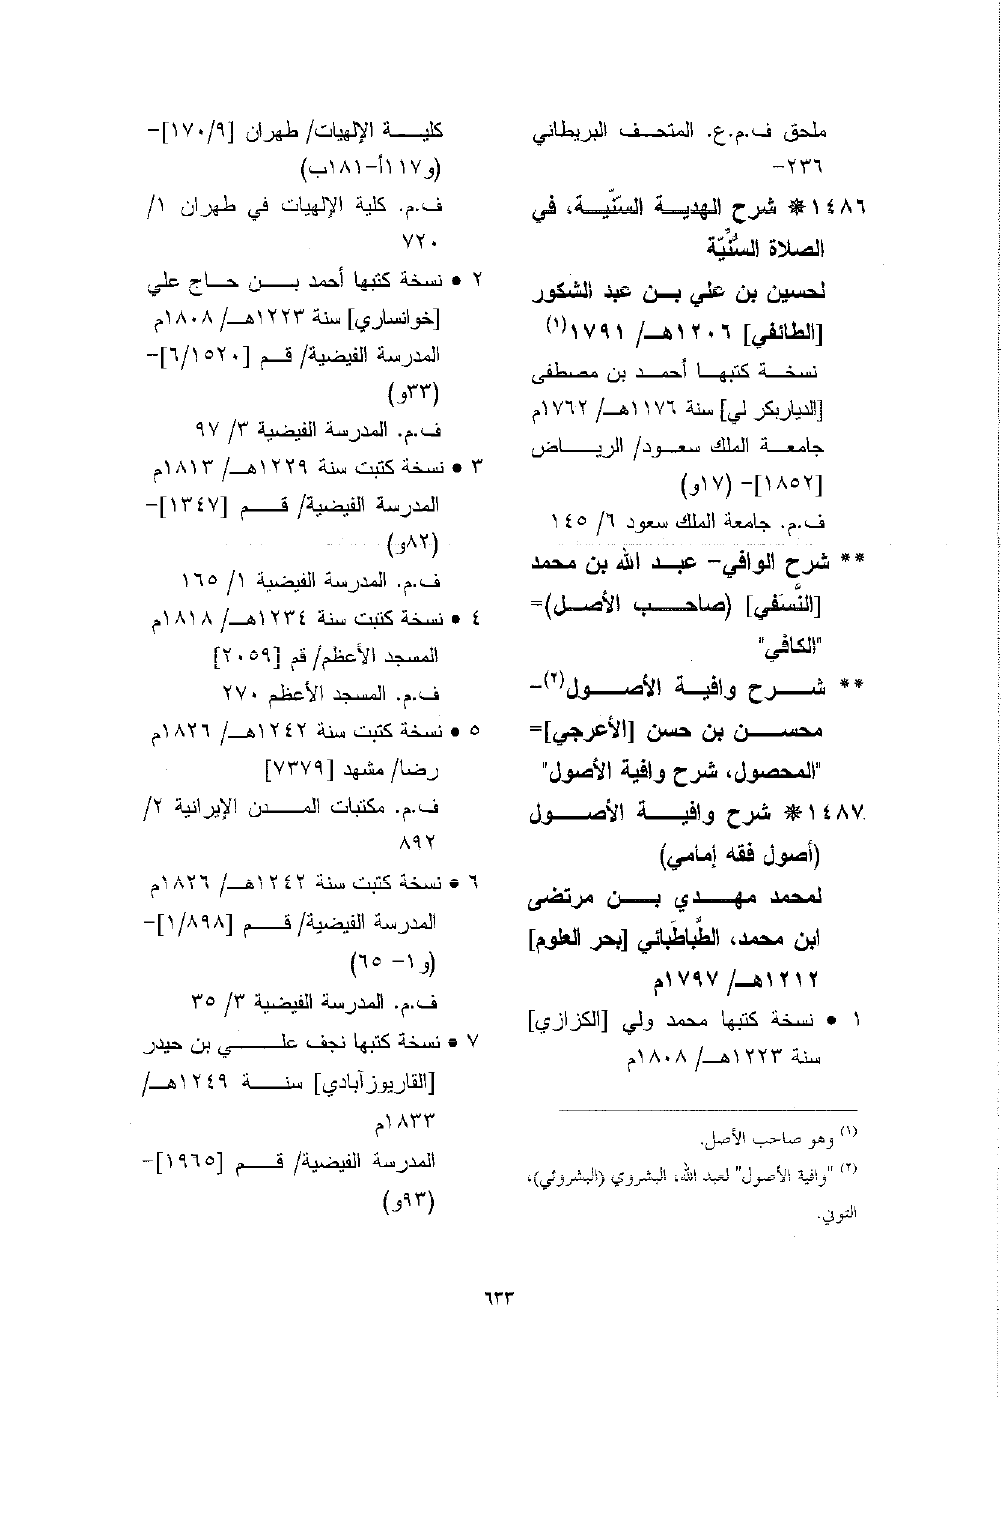 ملحق ف.م.ع. المتحف البريطاني
٢٣٦-
١٤٨٦* شرح الهدية السنّية، في
الصلاة السُّنّيّة
لحسين بن علي بن عبد الشكور
[الطائفي] ١٢٠٦هـ/ ١٧٩١(١)
نسخة كتبها أحمد بن مصطفى
[الدياربكر لي] سنة ١١٧٦هـ/ ١٧٦٢م
جامعة الملك سعود/ الرياض
[١٨٥٢]- (١٧و)
ف.م. جامعة الملك سعود ٦/ ١٤٥
** شرح الوافي- عبد الله بن محمد
[النَّسَفي] (صاحب الأصل)=
"الكافي"
** شرح وافية الأصول(٢)-
محسن بن حسن [الأعرجي]=
"المحصول، شرح وافية الأصول"
١٤٨٧* شرح وافية الأصول
(أصول فقه إمامي)
لمحمد مهدي بن مرتضى
ابن محمد، الطَّباطَبائي [بحر العلوم]
١٢١٢هـ/ ١٧٩٧م
١ • نسخة كتبها محمد ولي [الكزازي]
سنة ١٢٢٣هـ/ ١٨٠٨م
(١) وهو صاحب الأصل.
(٢) "وافية الأصول" لعبد الله، البشروي (البشروئي)،
التوني.
كلية الإلهيات/ طهران [١٧٠/٩]-
(و١١٧أ-١٨١ب)
ف.م. كلية الإلهيات في طهران ١/
٧٢٠
٢ • نسخة كتبها أحمد بن حاج علي
[خوانساري] سنة ١٢٢٣هـ/ ١٨٠٨م
المدرسة الفيضية/ قم [٦/١٥٢٠]-
(٣٣و)
ف.م. المدرسة الفيضية ٣/ ٩٧
٣ • نسخة كتبت سنة ١٢٢٩هـ/ ١٨١٣م
المدرسة الفيضية/ قم [١٣٤٧]-
(٨٢و)
ف.م. المدرسة الفيضية ١/ ١٦٥
٤ • نسخة كتبت سنة ١٢٣٤هـ/ ١٨١٨م
المسجد الأعظم/ قم [٢٠٥٩]
ف.م. المسجد الأعظم ٢٧٠
٥ • نسخة كتبت سنة ١٢٤٢هـ/ ١٨٢٦م
رضا/ مشهد [٧٣٧٩]
ف.م. مكتبات المدن الإيرانية ٢/
٨٩٢
٦ • نسخة كتبت سنة ١٢٤٢هـ/ ١٨٢٦م
المدرسة الفيضية/ قم [١/٨٩٨]-
(و١- ٦٥)
ف.م. المدرسة الفيضية ٣/ ٣٥
٧ • نسخة كتبها نجف علي بن حيدر
[القاريوزآبادي] سنة ١٢٤٩هـ/
١٨٣٣م
المدرسة الفيضية/ قم [١٩٦٥]-
(٩٣و)
٦٣٣